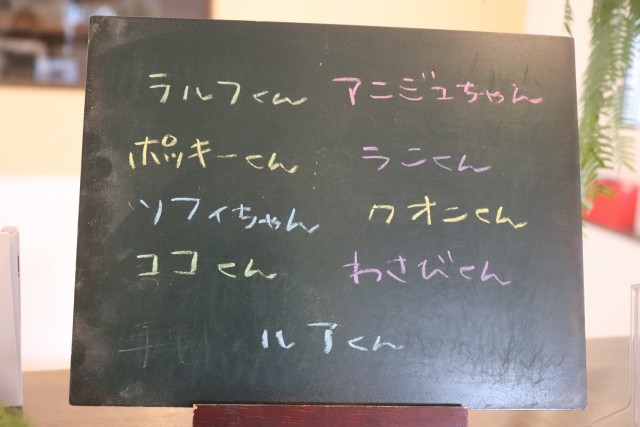 ラルフくん アニジュちゃん
ポッキーくん ラニくん
ソフィちゃん クオニくん
ココくん わさびくん
ルアくん